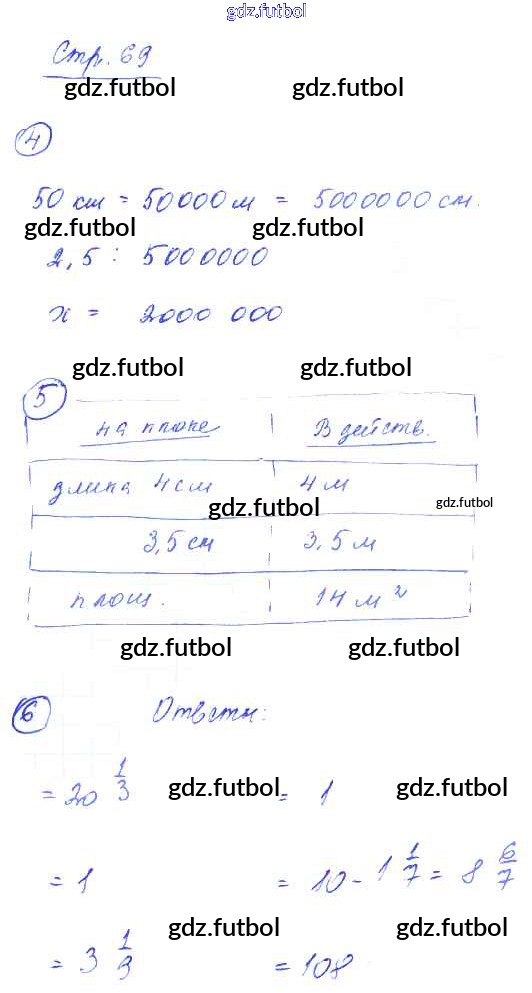 gdz.futbol
Стр. 69
gdz.futbol gdz.futbol
4
50 км = 50000 м = 5000000 см.
gdz.futbol gdz.futbol
2,5 : 5000000
x = 2000 000
gdz.futbol gdz.futbol
5
на плане В действ.
длина 4 см 4 м
gdz.futbol gdz.futbol
3,5 см 3,5 м
площ. 14 м²
gdz.futbol gdz.futbol
6 Ответы:
= 20 1/3 = 1
gdz.futbol gdz.futbol
= 1 = 10 - 1 1/7 = 8 6/7
gdz.futbol gdz.futbol
= 3 1/3 = 108